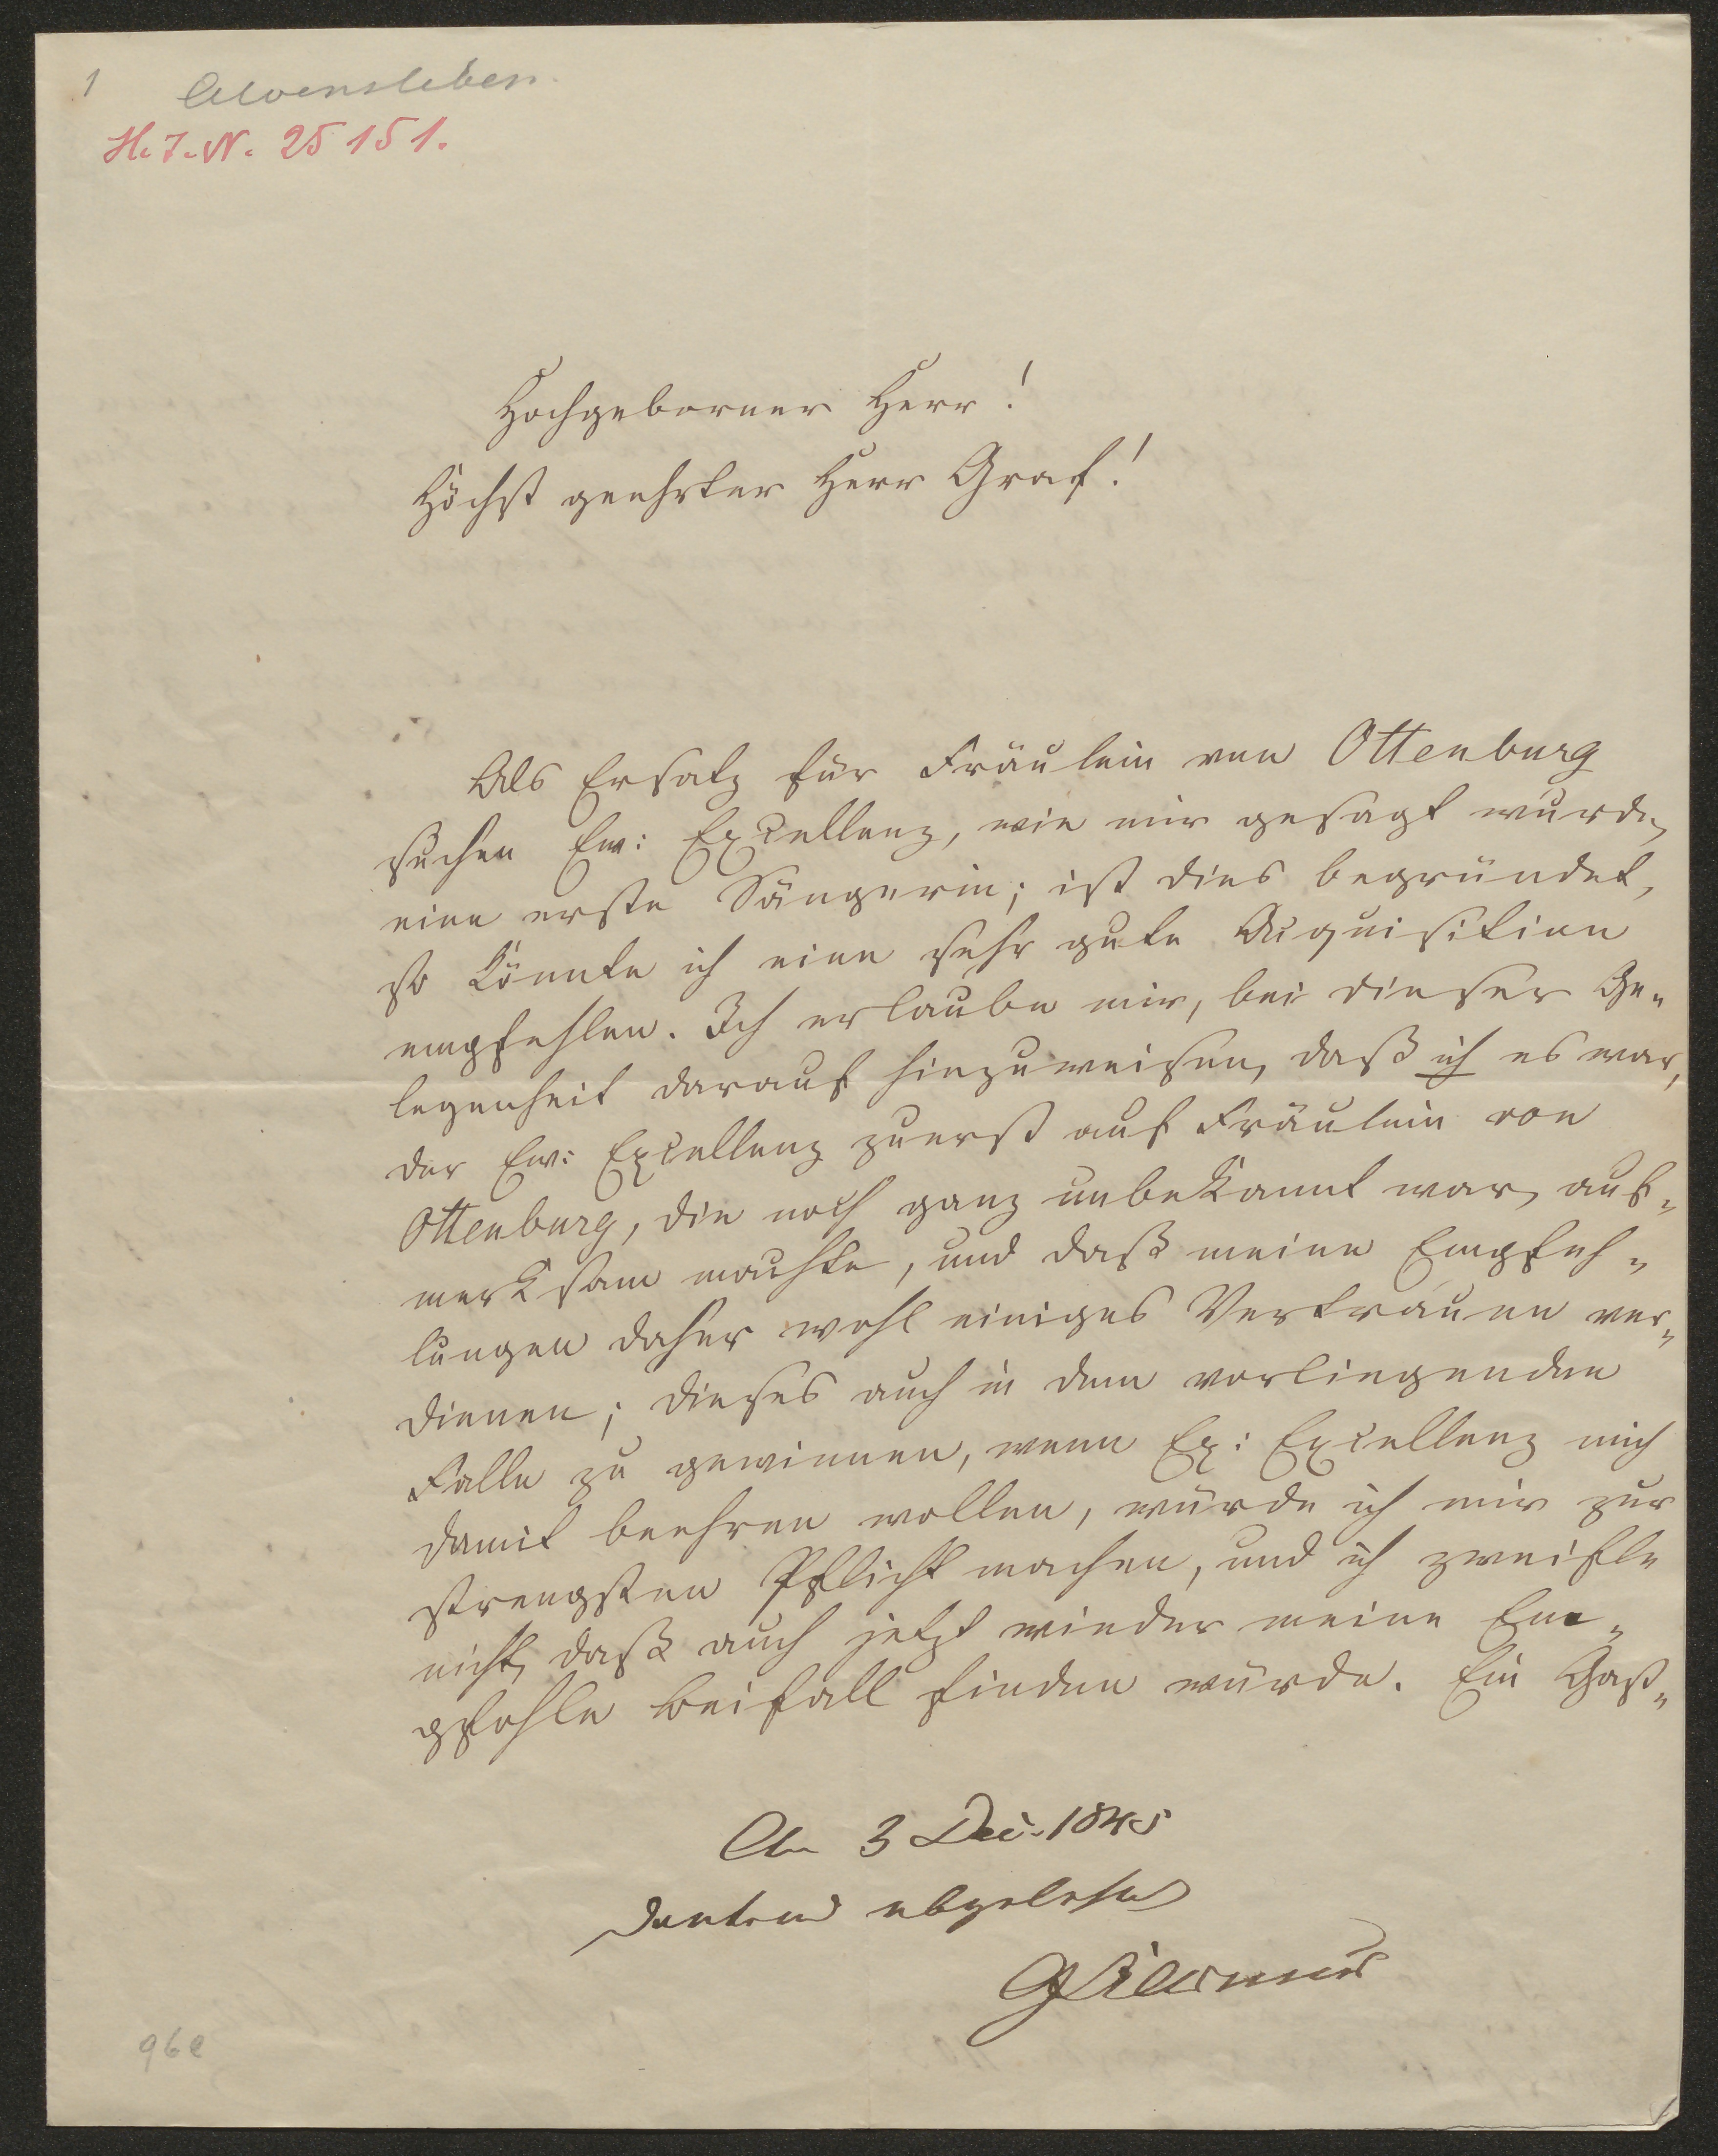 1 Alvensleben.
H. I. N. 25151.
Hochgeborner Herr!
Höchst geehrter Herr Graf!
Als Ersatz für Fräulein von Ottenburg
suchen Ew: Excellenz, wie mir gesagt wurde,
eine erste Sängerin; ist dies begründet,
so könnte ich eine sehr gute Acquisition
empfehlen. Ich erlaube mir, bei dieser Ge-
legenheit darauf hinzuweisen, daß ich es war,
der Ew: Excellenz zuerst auf Fräulein von
Ottenburg, die noch ganz unbekannt war, auf-
merksam machte, und daß meine Empfeh-
lungen daher wohl einiges Vertrauen ver-
dienen; dieses auch in dem vorliegenden
Falle zu gewinnen, wenn Ex: Excellenz mich
damit beehren wollen, würde ich mir zur
strengsten Pflicht machen, und ich zweifle
nicht, daß auch jetzt wieder meine Em-
pfohle Beifall finden würde. Ein Gast-
3 Dec. 1845
dankend abgelehnt
96e